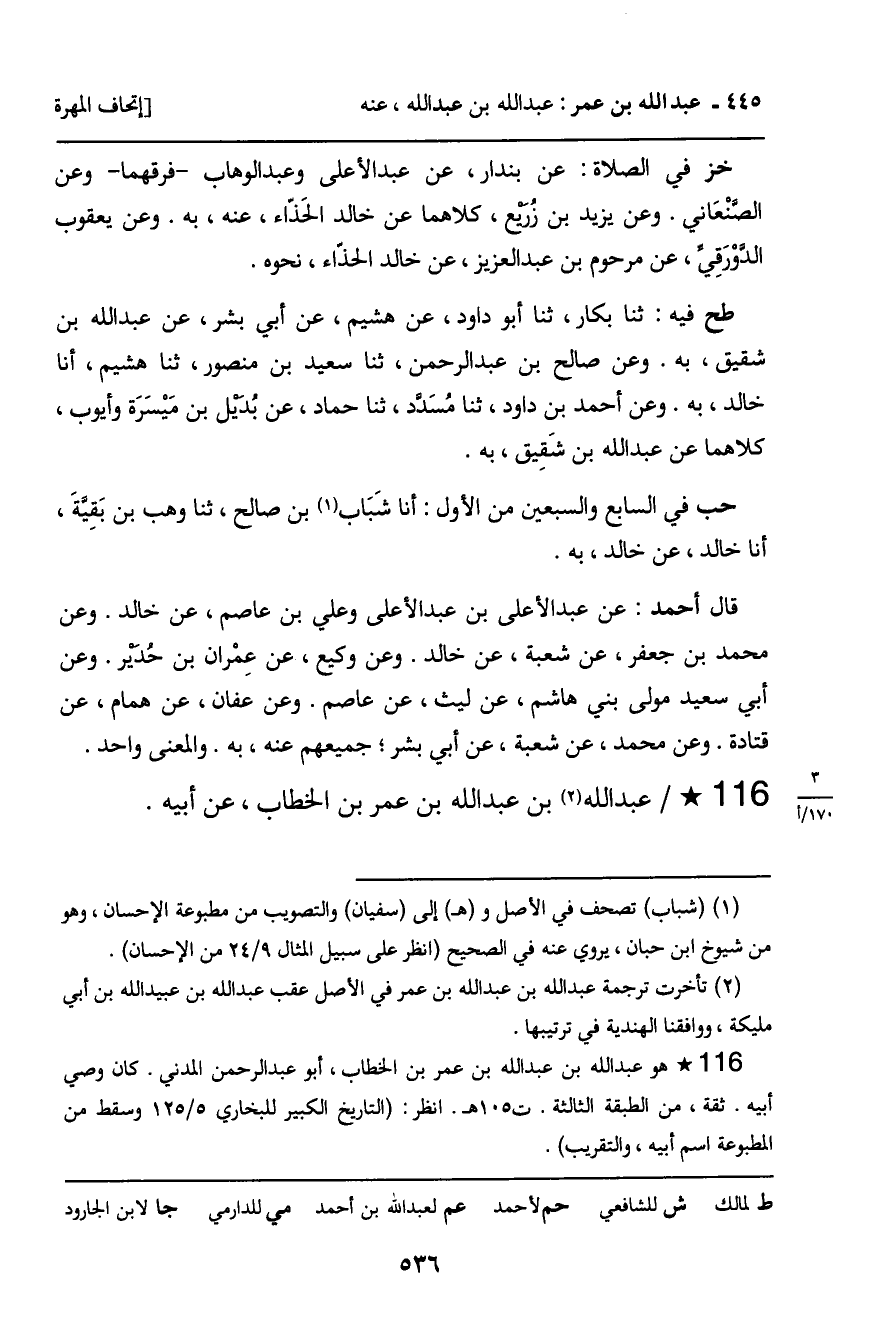 ٤٤٥ ـ عبد الله بن عمر : عبدالله بن عبدالله ، عنه [إتحاف المهرة
خز في الصلاة : عن بندار ، عن عبدالأعلى وعبدالوهاب -فرقهما- وعن
الصَّنْعَاني . وعن يزيد بن زُرَيْع ، كلاهما عن خالد الحَذّاء ، عنه ، به . وعن يعقوب
الدَّوْرَقِيِّ ، عن مرحوم بن عبدالعزيز ، عن خالد الحذّاء ، نحوه .
طح فيه : ثنا بكار ، ثنا أبو داود ، عن هشيم ، عن أبي بشر ، عن عبدالله بن
شقيق ، به . وعن صالح بن عبدالرحمن ، ثنا سعيد بن منصور ، ثنا هشيم ، أنا
خالد ، به . وعن أحمد بن داود ، ثنا مُسَدَّد ، ثنا حماد ، عن بُدَيْل بن مَيْسَرَة وأيوب ،
كلاهما عن عبدالله بن شَقِيق ، به .
حب في السابع والسبعين من الأول : أنا شَبَاب(١) بن صالح ، ثنا وهب بن بَقِيَّةَ ،
أنا خالد ، عن خالد ، به .
قال أحمد : عن عبدالأعلى بن عبدالأعلى وعلي بن عاصم ، عن خالد . وعن
محمد بن جعفر ، عن شعبة ، عن خالد . وعن وكيع ، عن عِمْران بن حُدَيْر . وعن
أبي سعيد مولى بني هاشم ، عن ليث ، عن عاصم . وعن عفان ، عن همام ، عن
قتادة . وعن محمد ، عن شعبة ، عن أبي بشر ؛ جميعهم عنه ، به . والمعنى واحد .
116 ★ / عبدالله(٢) بن عبدالله بن عمر بن الخطاب ، عن أبيه .
٣
١٧٠/أ
(١) (شباب) تصحف في الأصل و (هـ) إلى (سفيان) والتصويب من مطبوعة الإحسان ، وهو
من شيوخ ابن حبان ، يروي عنه في الصحيح (انظر على سبيل المثال ٢٤/٩ من الإحسان) .
(٢) تأخرت ترجمة عبدالله بن عبدالله بن عمر في الأصل عقب عبدالله بن عبيدالله بن أبي
مليكة ، ووافقنا الهندية في ترتيبها .
116 ★ هو عبدالله بن عبدالله بن عمر بن الخطاب ، أبو عبدالرحمن المدني . كان وصي
أبيه . ثقة ، من الطبقة الثالثة . ت١٠٥هـ . انظر : (التاريخ الكبير للبخاري ١٢٥/٥ وسقط من
المطبوعة اسم أبيه ، والتقريب) .
ط لمالك ش للشافعي حم لأحمد عم لعبدالله بن أحمد مي للدارمي جا لابن الجارود
٥٣٦